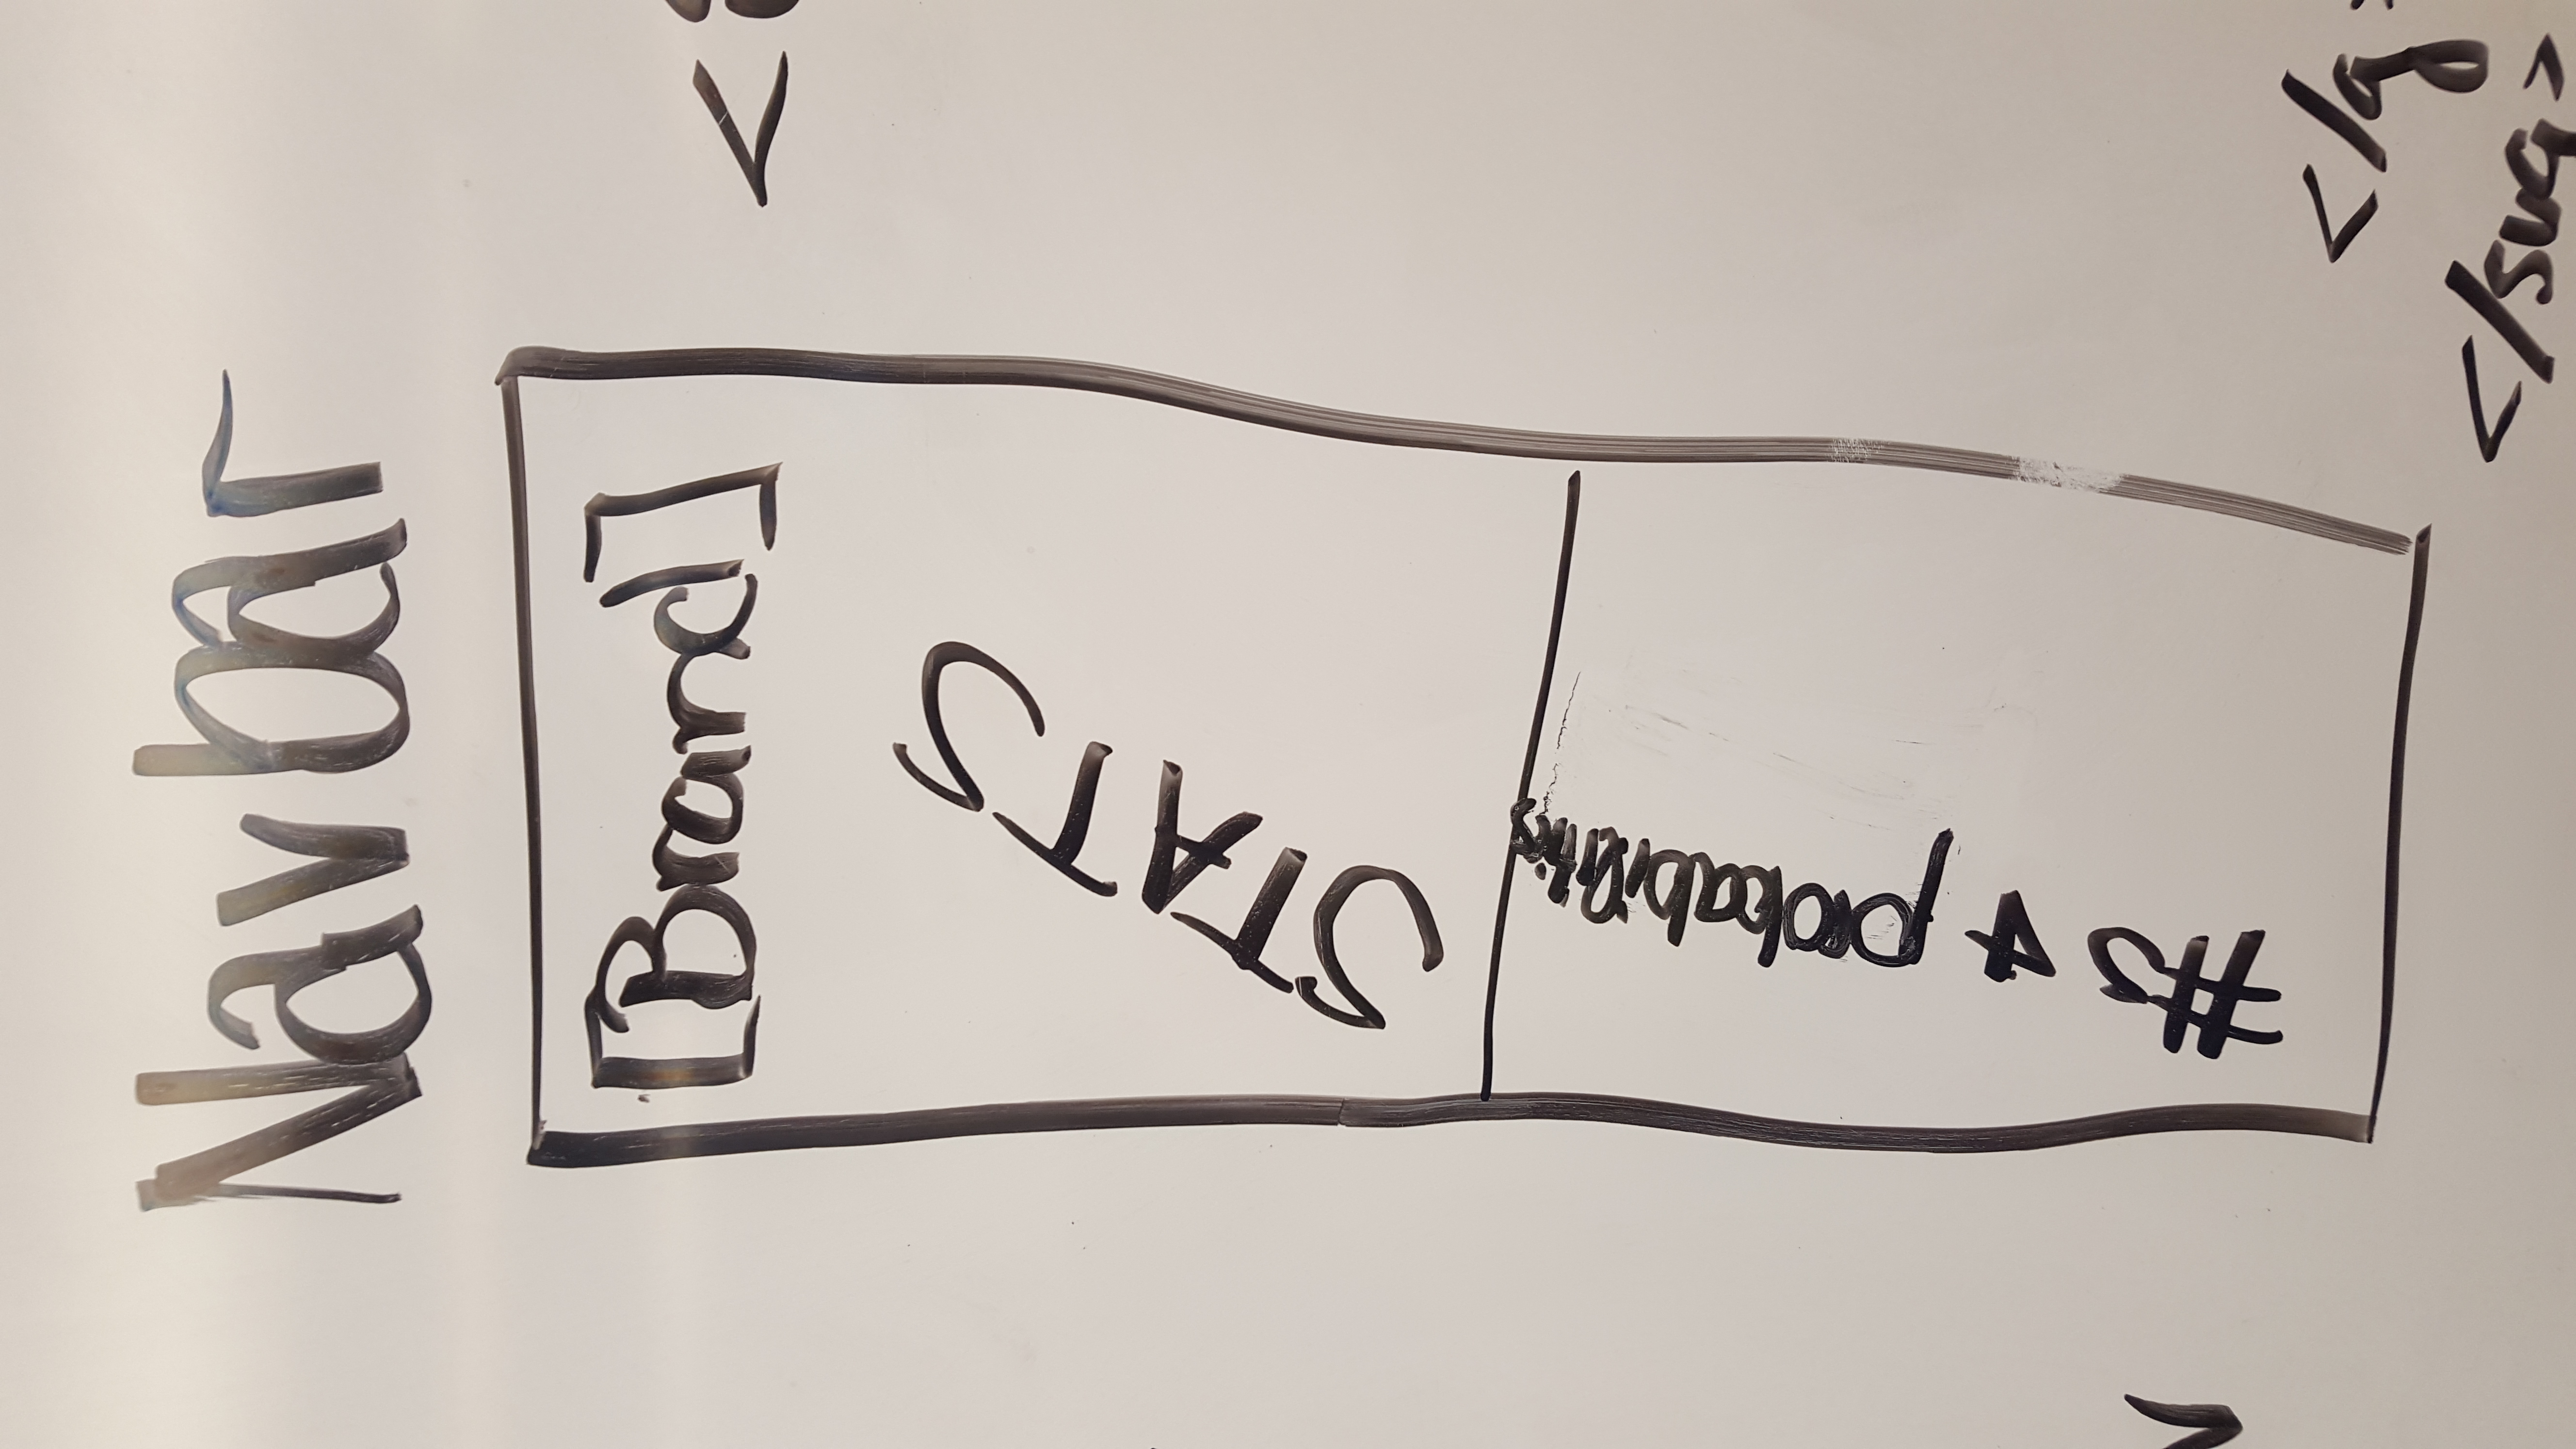 Navbar
[Brand]
STATS
#s 4 probabilities
<
</g>
</svg>